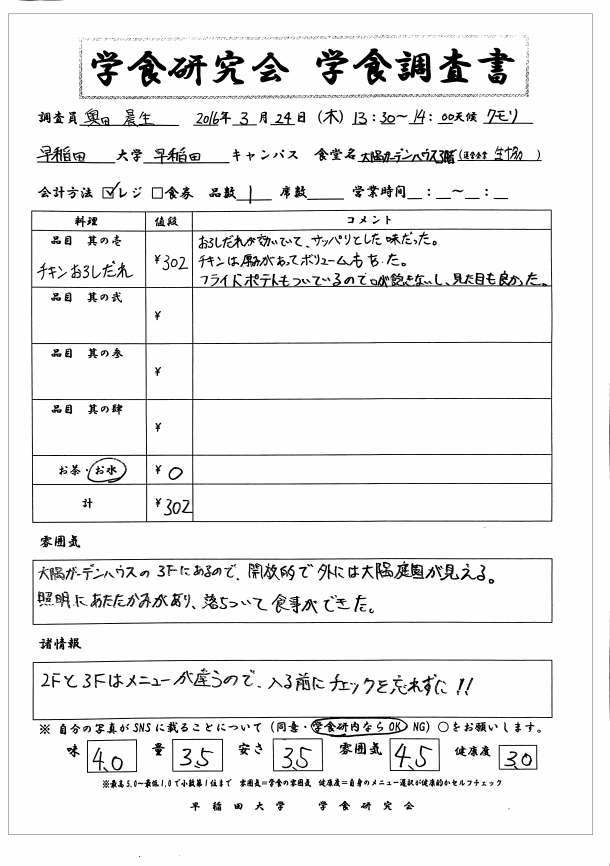 学食研究会 学食調査書
調査員 奥田 晨生 2016年 3月 24日 (木) 13:30〜14:00 天候 クモリ
早稲田 大学 早稲田 キャンパス 食堂名 大隈ガーデンハウス3階 (運営会業 生協 )
会計方法 ☑レジ □食券 品数 1 席数 営業時間 : 〜 :
料理 値段 コメント
品目 其の壱
チキンおろしだれ ¥302
おろしだれが効いていて、サッパリとした味だった。
チキンは厚みがあってボリュームもあった。
フライドポテトもついているので口が飽きないし、見た目も良かった。
品目 其の弐 ¥
品目 其の参 ¥
品目 其の肆 ¥
お茶・お水 ¥ 0
計 ¥302
雰囲気
大隈ガーデンハウスの3Fにあるので、開放的で外には大隈庭園が見える。
照明にあたたかみがあり、落ちついて食事ができた。
諸情報
2Fと3Fはメニューが違うので、入る前にチェックを忘れずに!!
※ 自分の写真がSNSに載ることについて (同意・学食研内ならOK NG) ○をお願いします。
味 4.0 量 3.5 安さ 3.5 雰囲気 4.5 健康度 3.0
※最高5.0〜最低1.0で小数第1位まで 雰囲気=学食の雰囲気 健康度=自身のメニュー選択が健康的かセルフチェック
早稲田大学 学食研究会